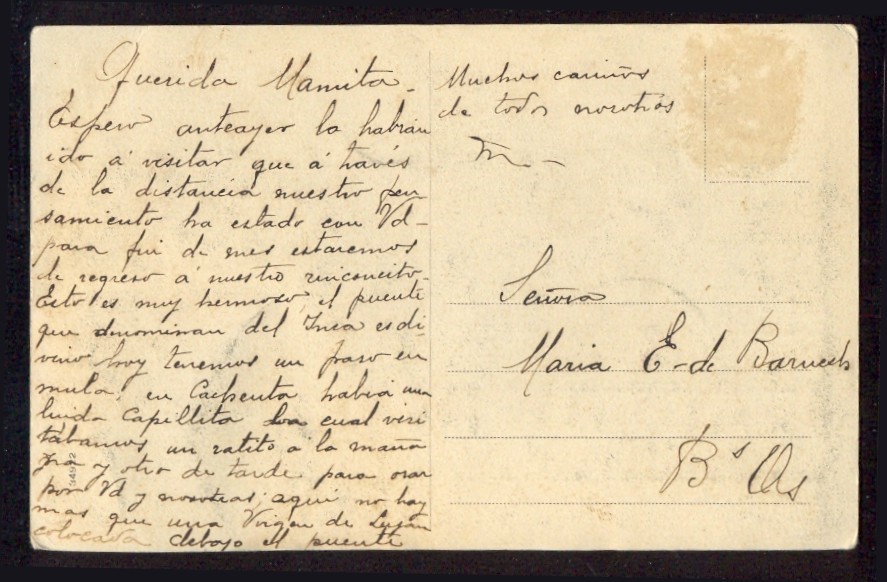 Querida Mamita -
Espero anteayer la habrán
ido á visitar que á través
de la distancia nuestro pen
samiento ha estado con Vd -
para fin de mes estaremos
de regreso á nuestro rinconcito -
Esto es muy hermoso, el puente
que denominan del Inca es di-
vino hoy tenemos un paseo en
mula, en Cacheuta había una
linda Capillita la cual visi
tabamos un ratito á la maña
na y otro de tarde para orar
por Vd y nosotras; aquí no hay
mas que una Virgen de Luján
colocada debajo el puente
34972
Muchos cariños
de todos nosotros
Señora
Maria E - de Baruch
Bs As